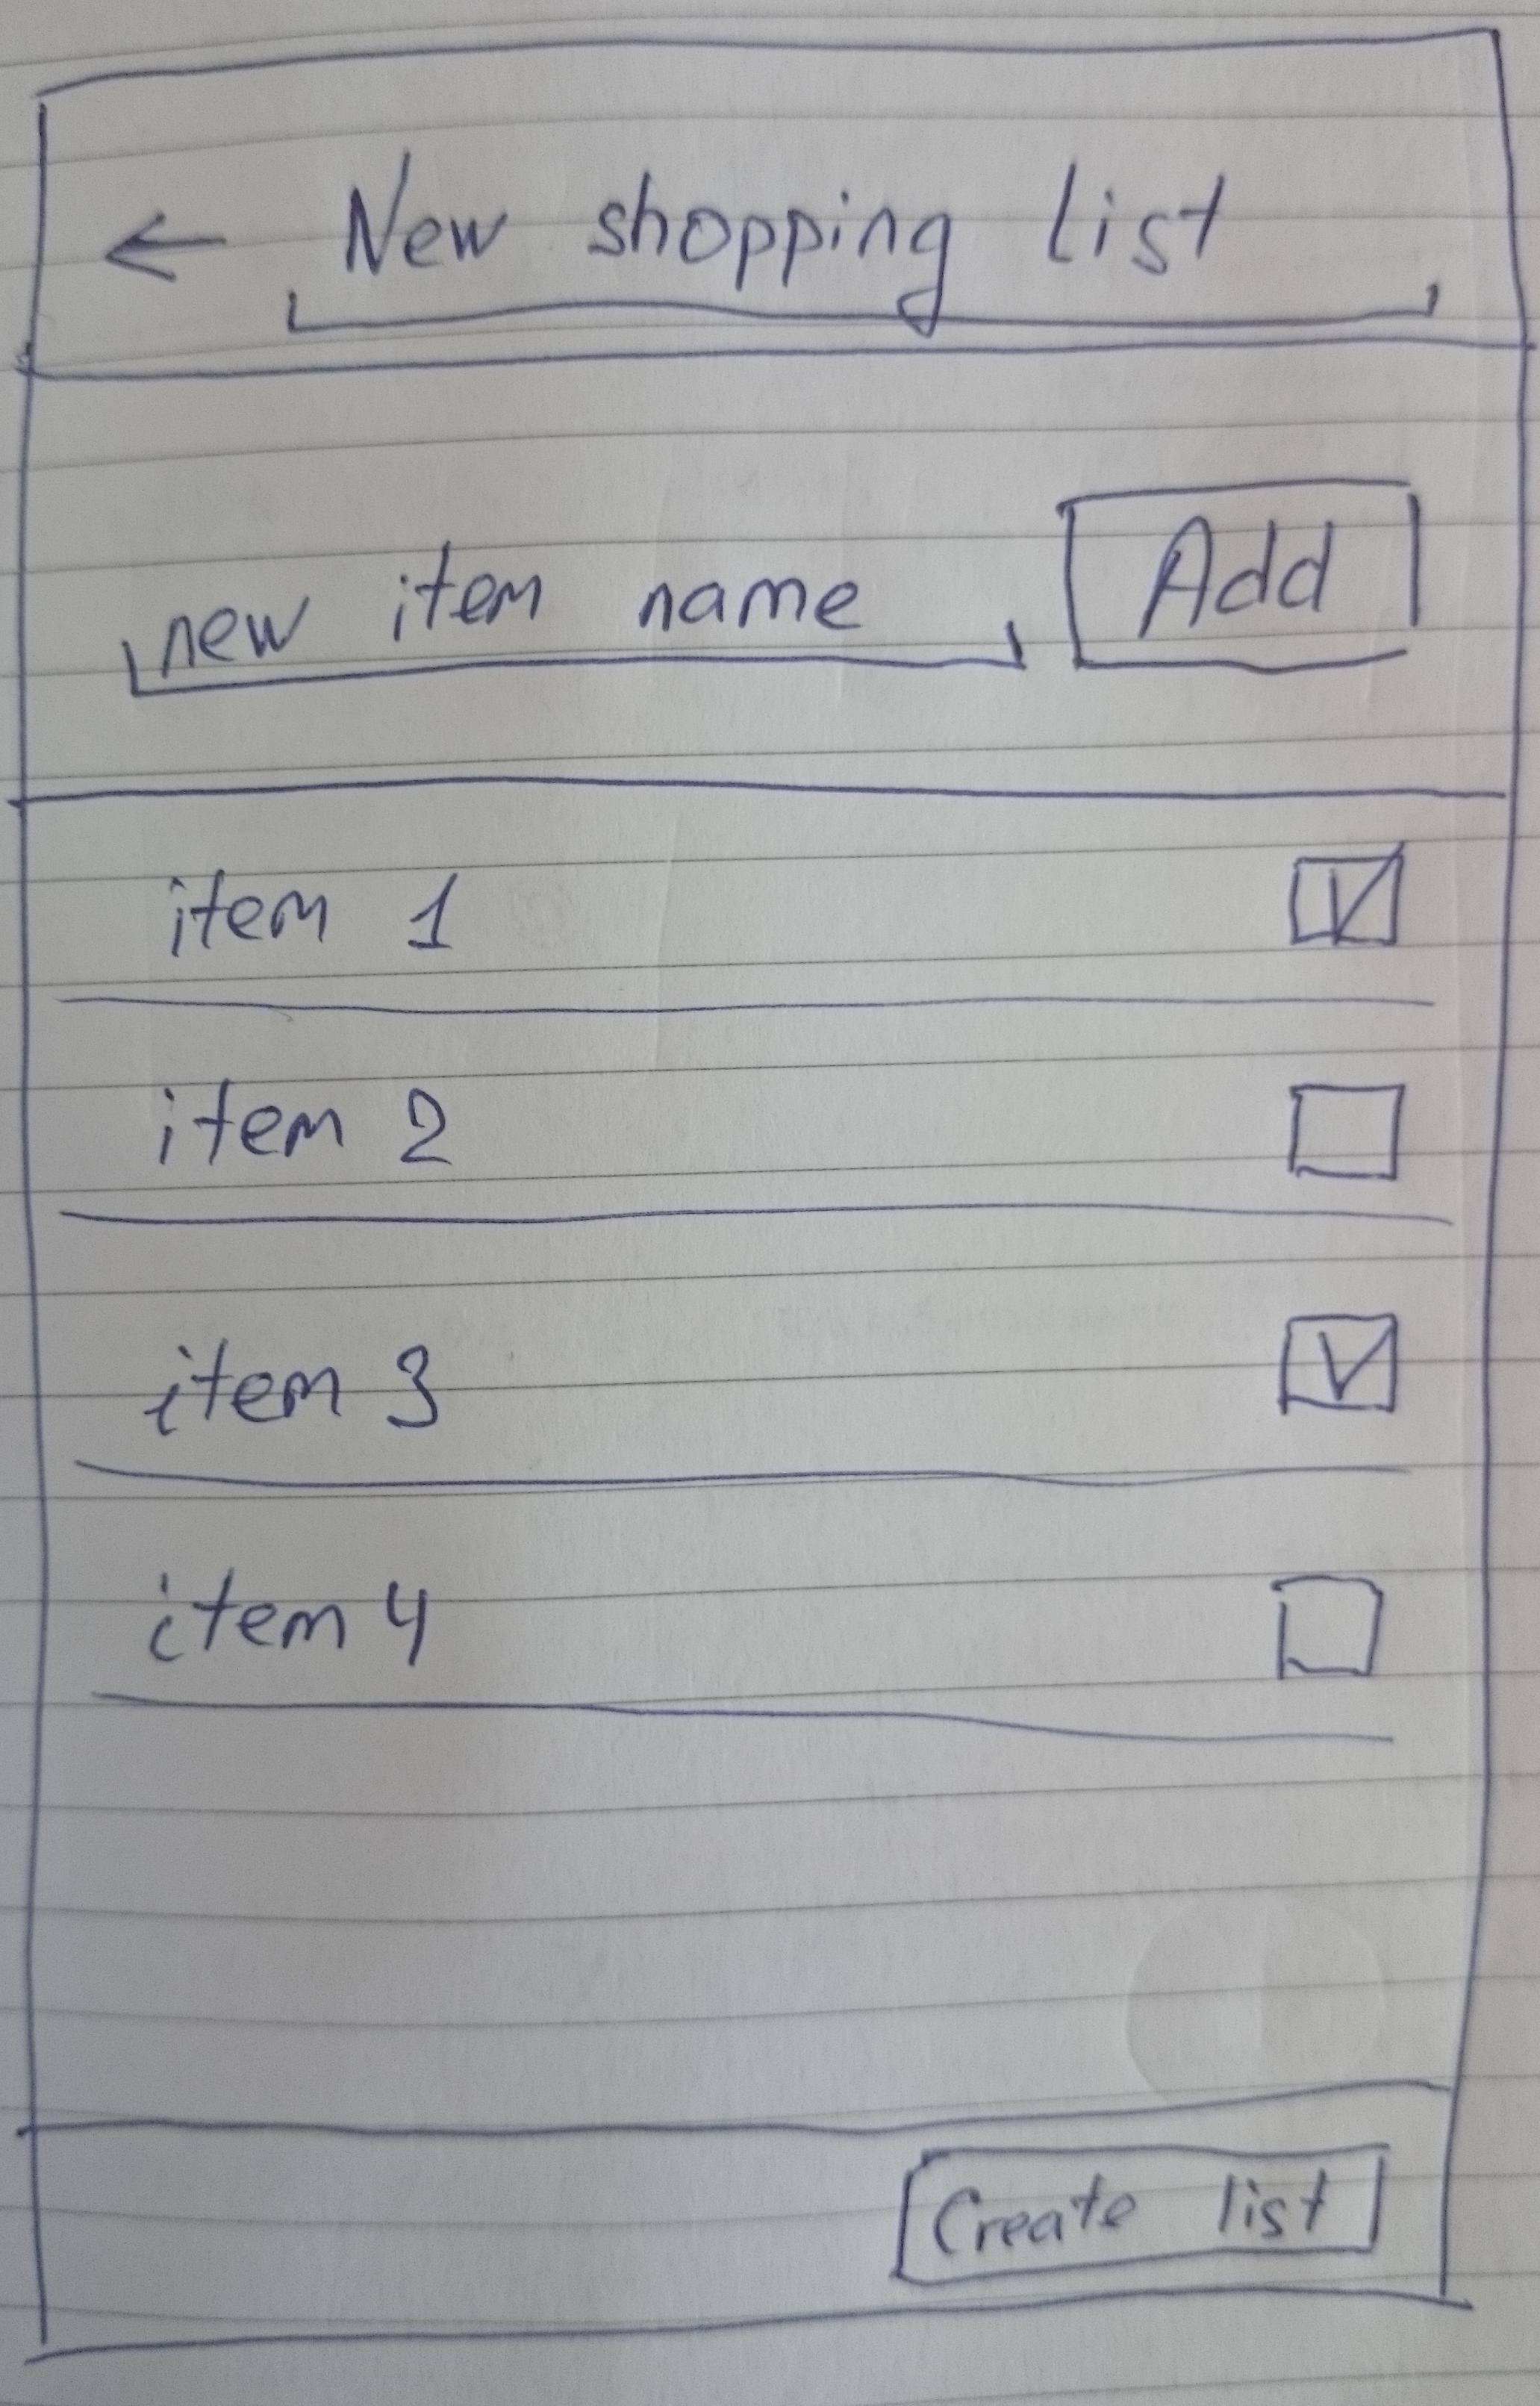 ← New shopping list
new item name Add
item 1
item 2
item 3
item 4
Create list